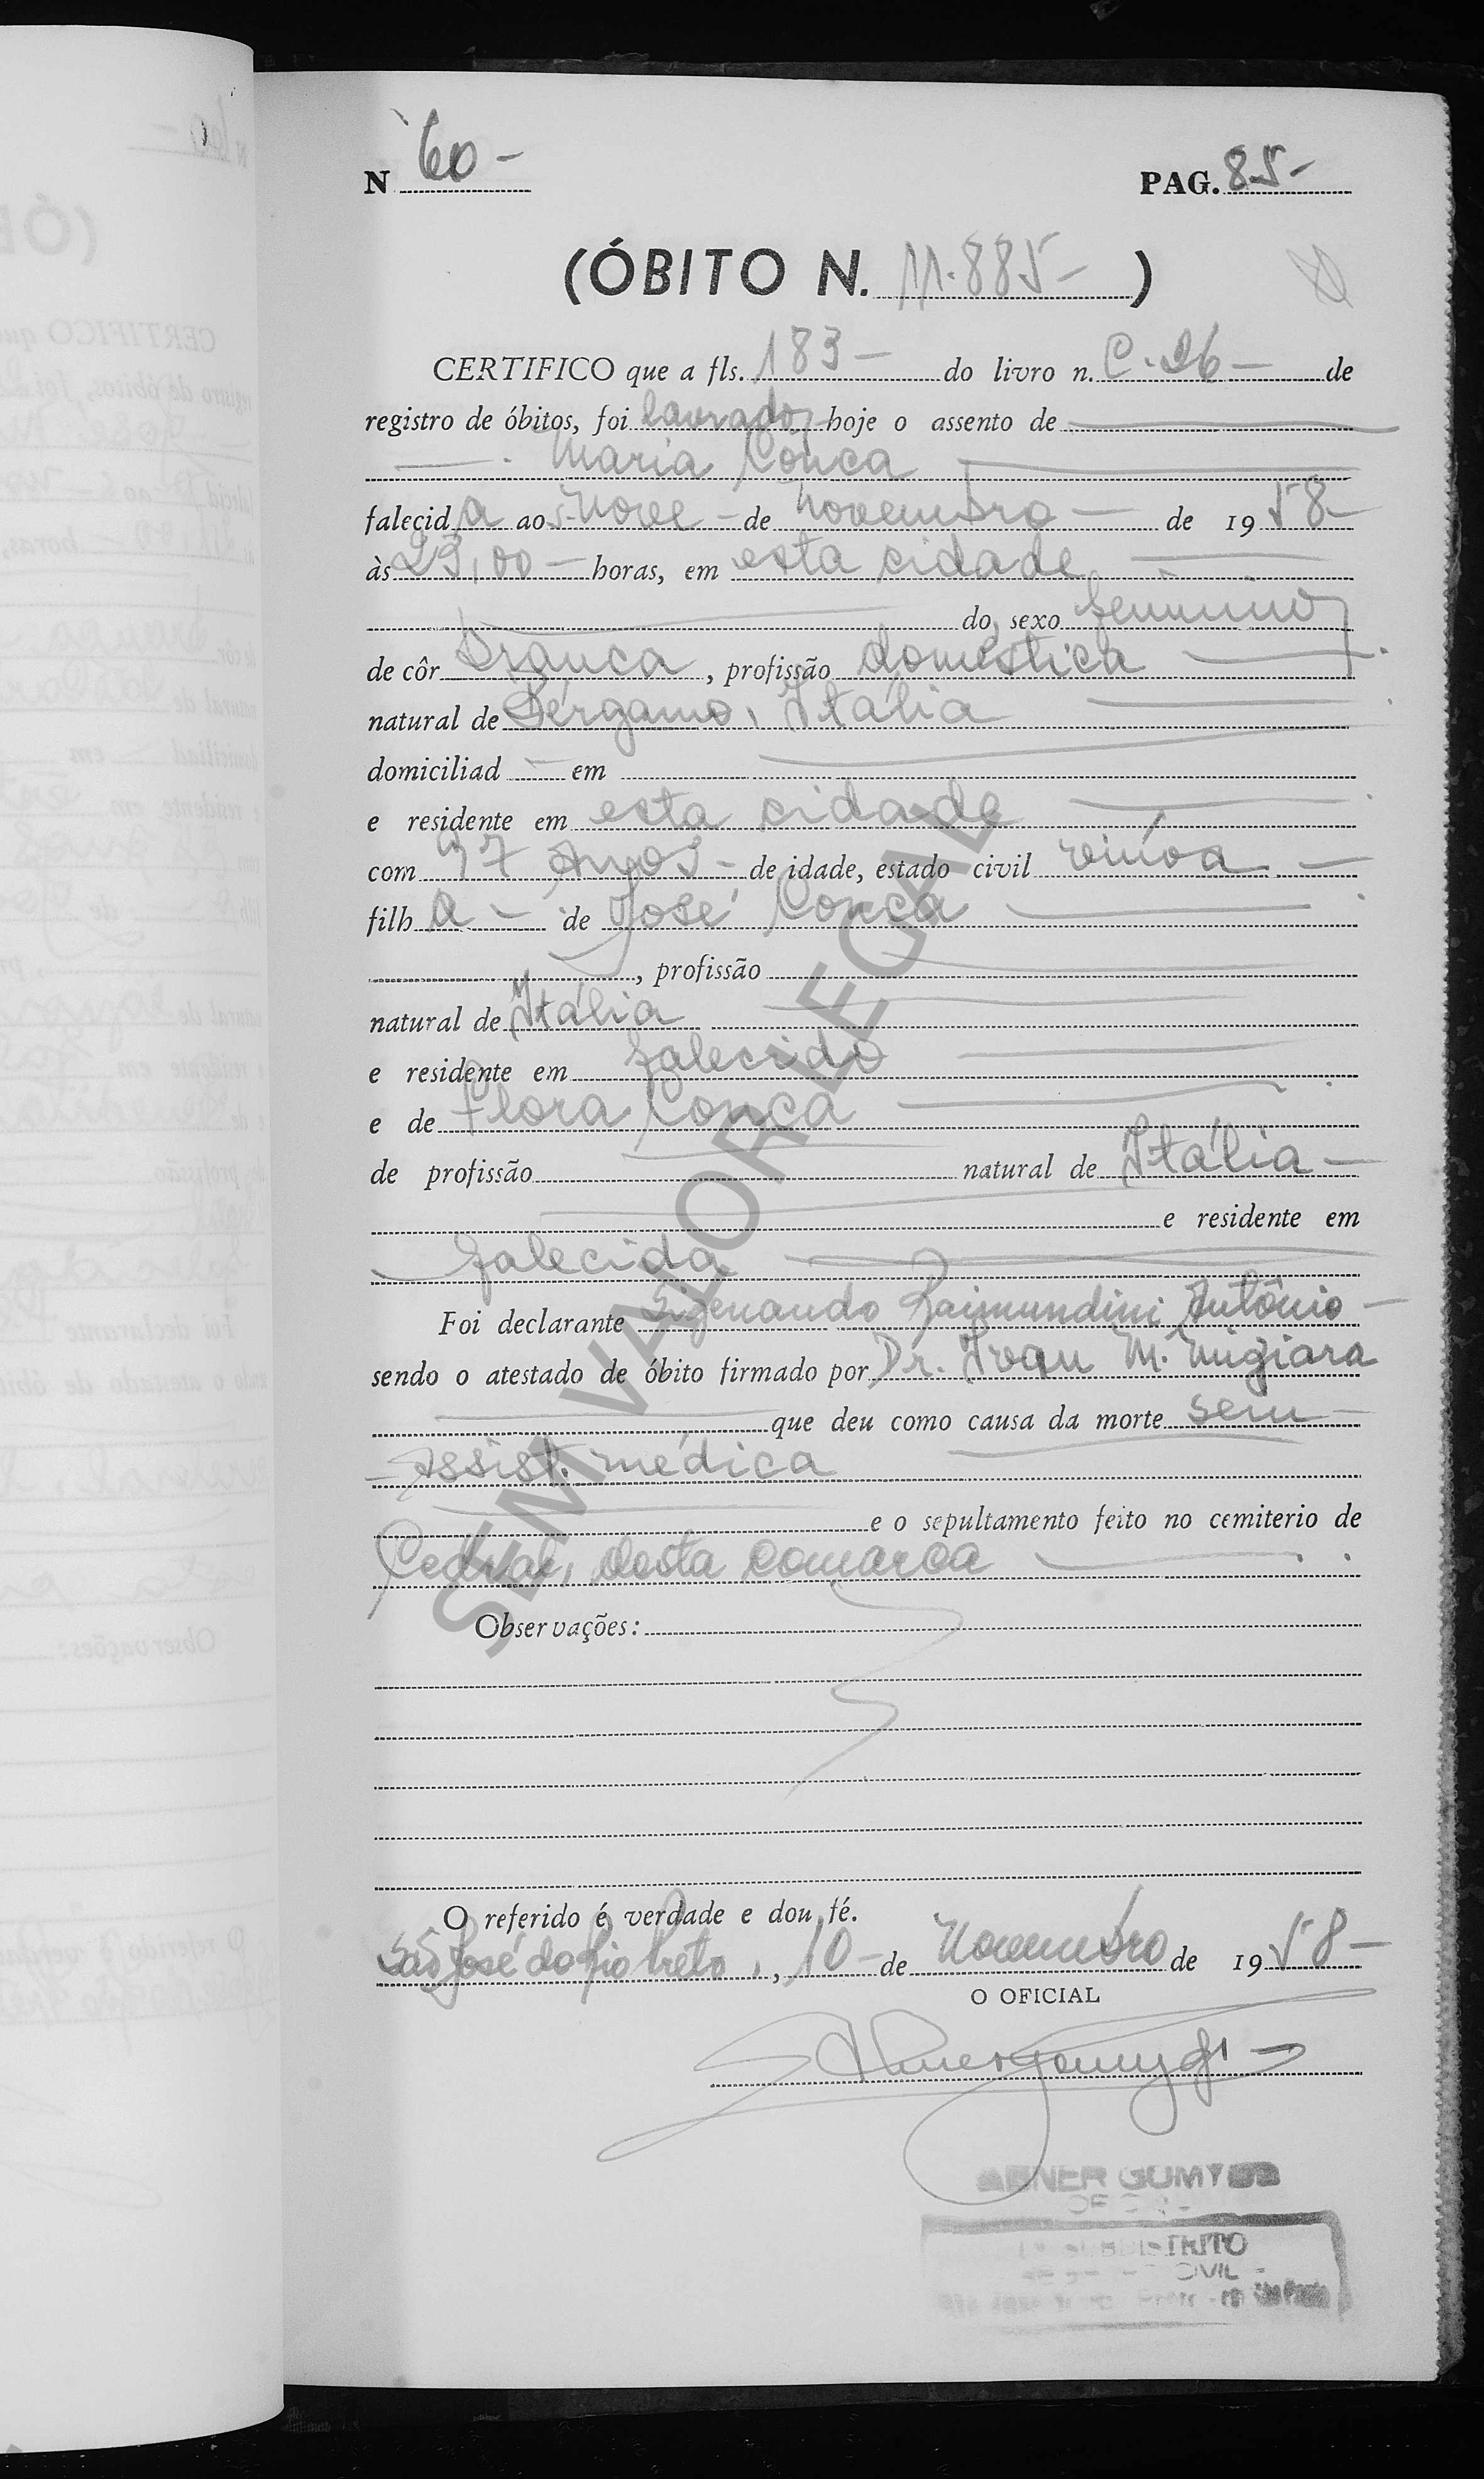 N 60 - PAG. 85 -
(ÓBITO N. 11.885 - )
CERTIFICO que a fls. 183 - do livro n. C-26 - de
registro de óbitos, foi lavrado, hoje o assento de
Maria Conca
falecida aos nove - de novembro - de 1958 -
às 23,00 - horas, em esta cidade
do sexo feminino,
de côr branca, profissão doméstica
natural de Bérgamo, Itália
domiciliad - em
e residente em esta cidade
com 77 Anos - de idade, estado civil viúva -
filha - de José Conca
, profissão
natural de Itália
e residente em falecido
e de Flora Conca
de profissão natural de Itália -
e residente em
falecida
Foi declarante Raimundini Antônio -
sendo o atestado de óbito firmado por Dr. Ivan M.
que deu como causa da morte sem -
Assist. médica
e o sepultamento feito no cemiterio de
Cedral, desta comarca
Observações:
O referido é verdade e dou fé.
São José do Rio Preto, 10 - de Novembro de 1958 -
O OFICIAL
ABNER GUMY
DISTRITO
CIVIL
SEM VALOR LEGAL